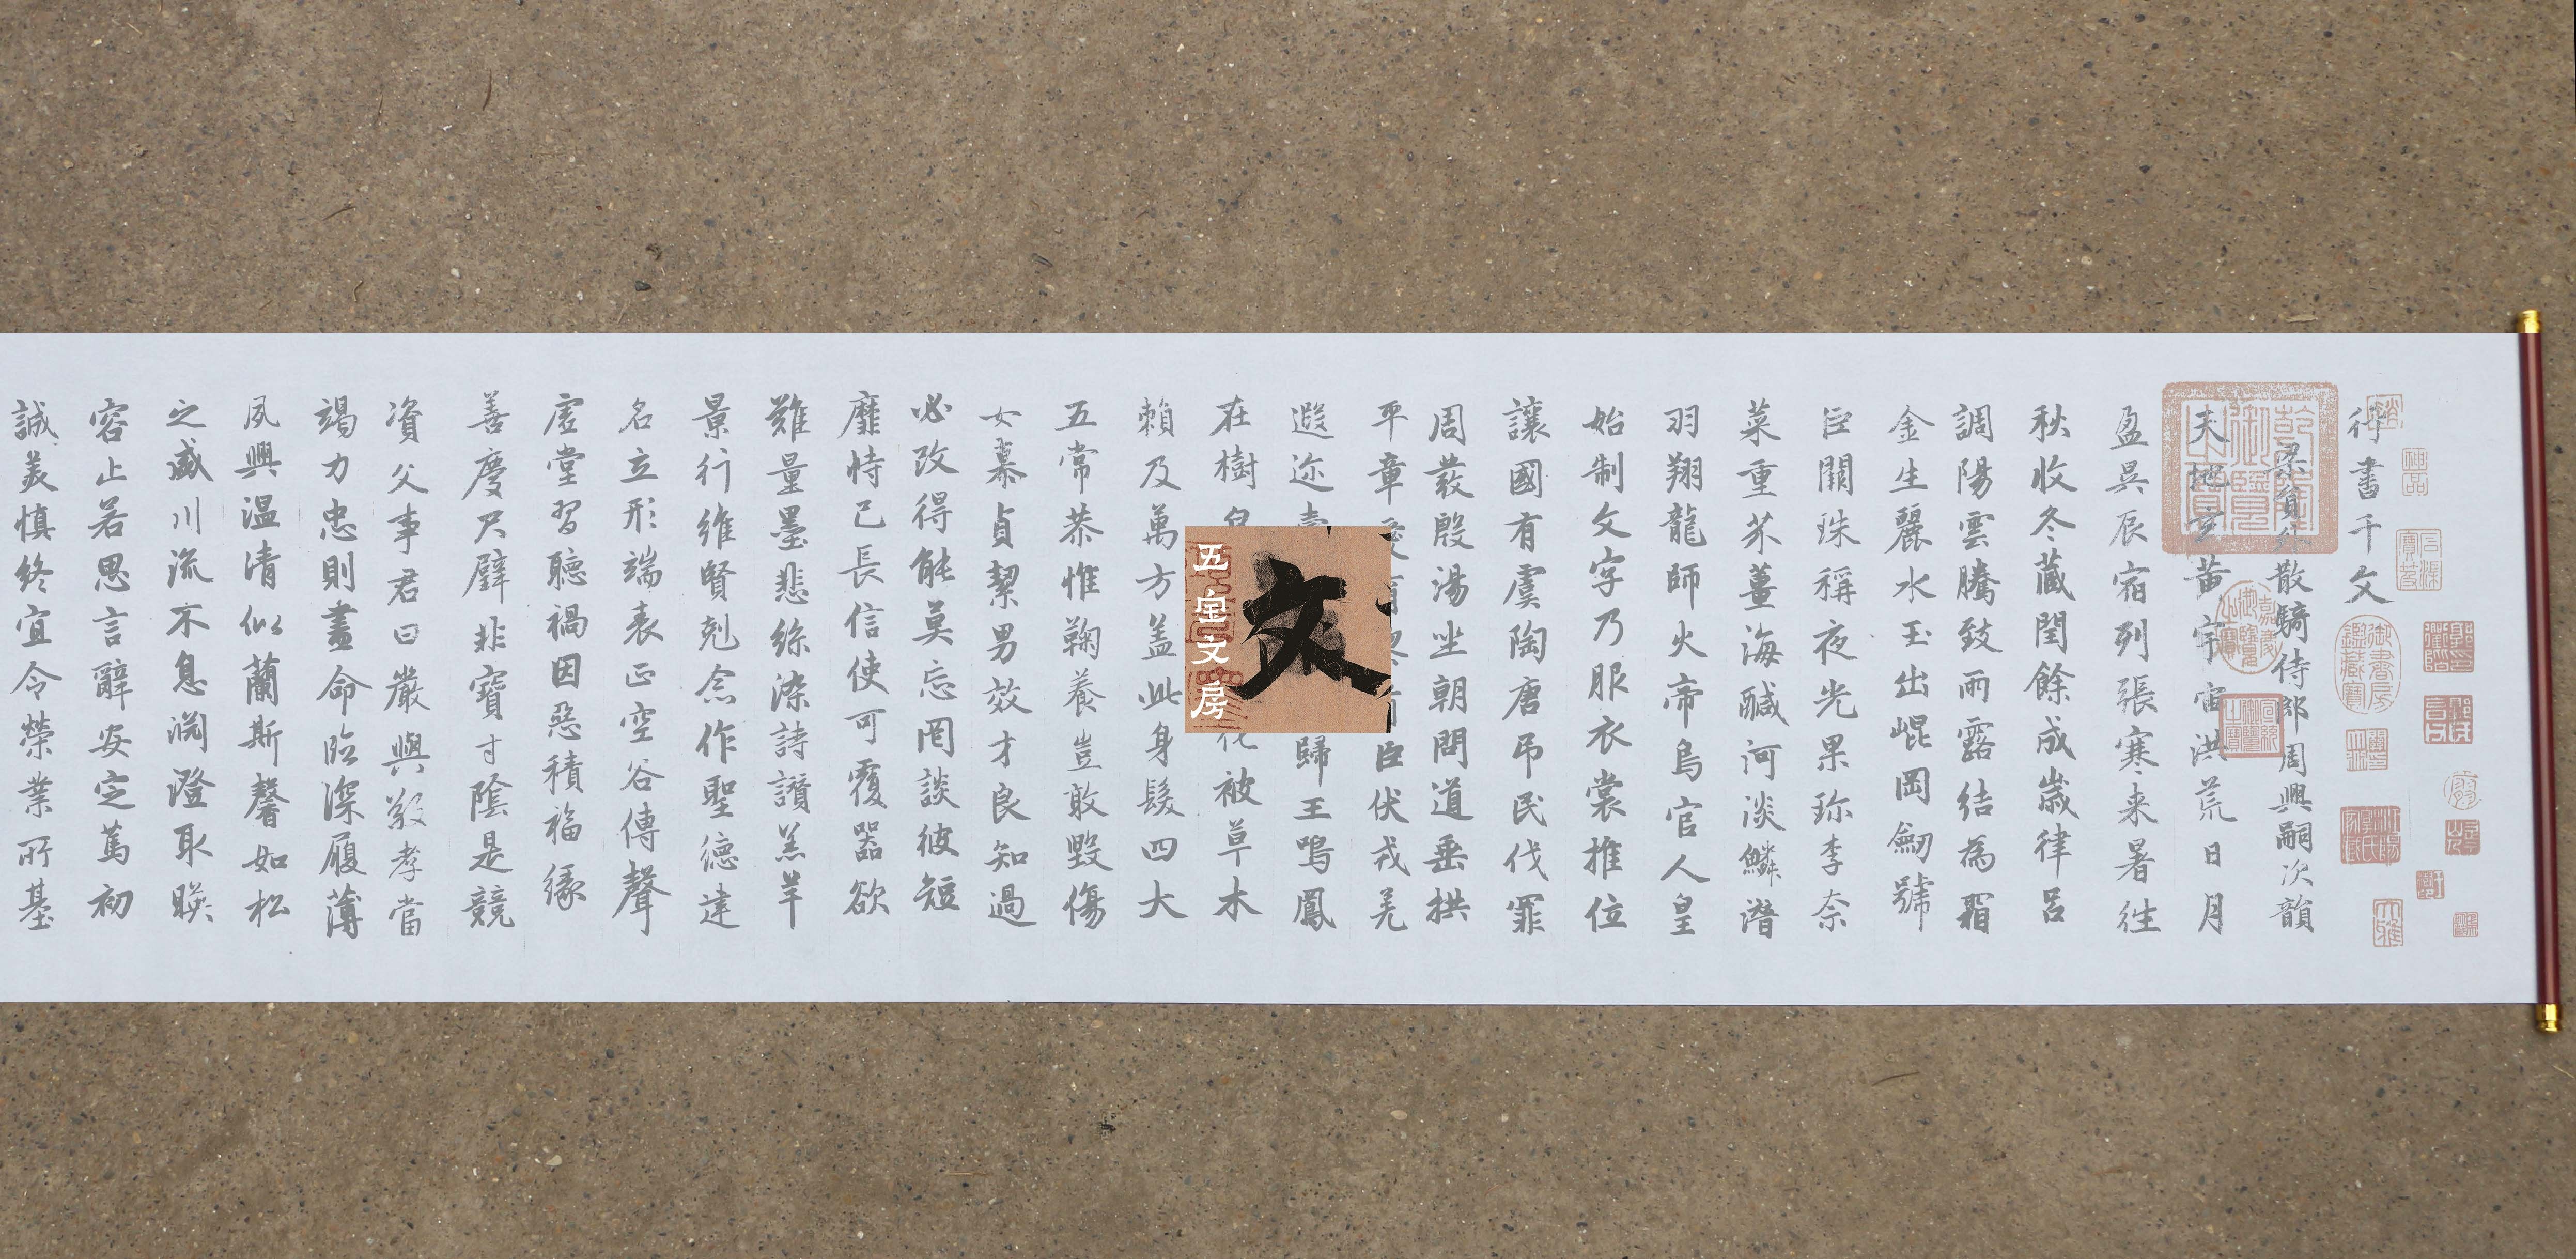 行書千文
梁員外散騎侍郎周興嗣次韻
天地玄黃宇宙洪荒日月
盈昃辰宿列張寒来暑往
秋收冬藏閏餘成歲律呂
調陽雲騰致雨露結為霜
金生麗水玉出崐岡劒號
巨闕珠稱夜光果珎李柰
菜重芥薑海鹹河淡鱗潛
羽翔龍師火帝鳥官人皇
始制文字乃服衣裳推位
讓國有虞陶唐吊民伐罪
周發殷湯坐朝問道垂拱
平章臣伏戎羌
遐迩歸王鳴鳳
在樹被草木
賴及萬方盖此身髮四大
五常恭惟鞠養豈敢毀傷
女慕貞絜男效才良知過
必改得能莫忘罔談彼短
靡恃己長信使可覆器欲
難量墨悲絲染詩讚羔羊
景行維賢剋念作聖德建
名立形端表正空谷傳聲
虛堂習聽禍因惡積福緣
善慶尺璧非寶寸陰是競
資父事君曰嚴與敬孝當
竭力忠則盡命臨深履薄
夙興温清似蘭斯馨如松
之盛川流不息淵澄取暎
容止若思言辭安定篤初
誠美慎終宜令榮業所基
文
五宝文房